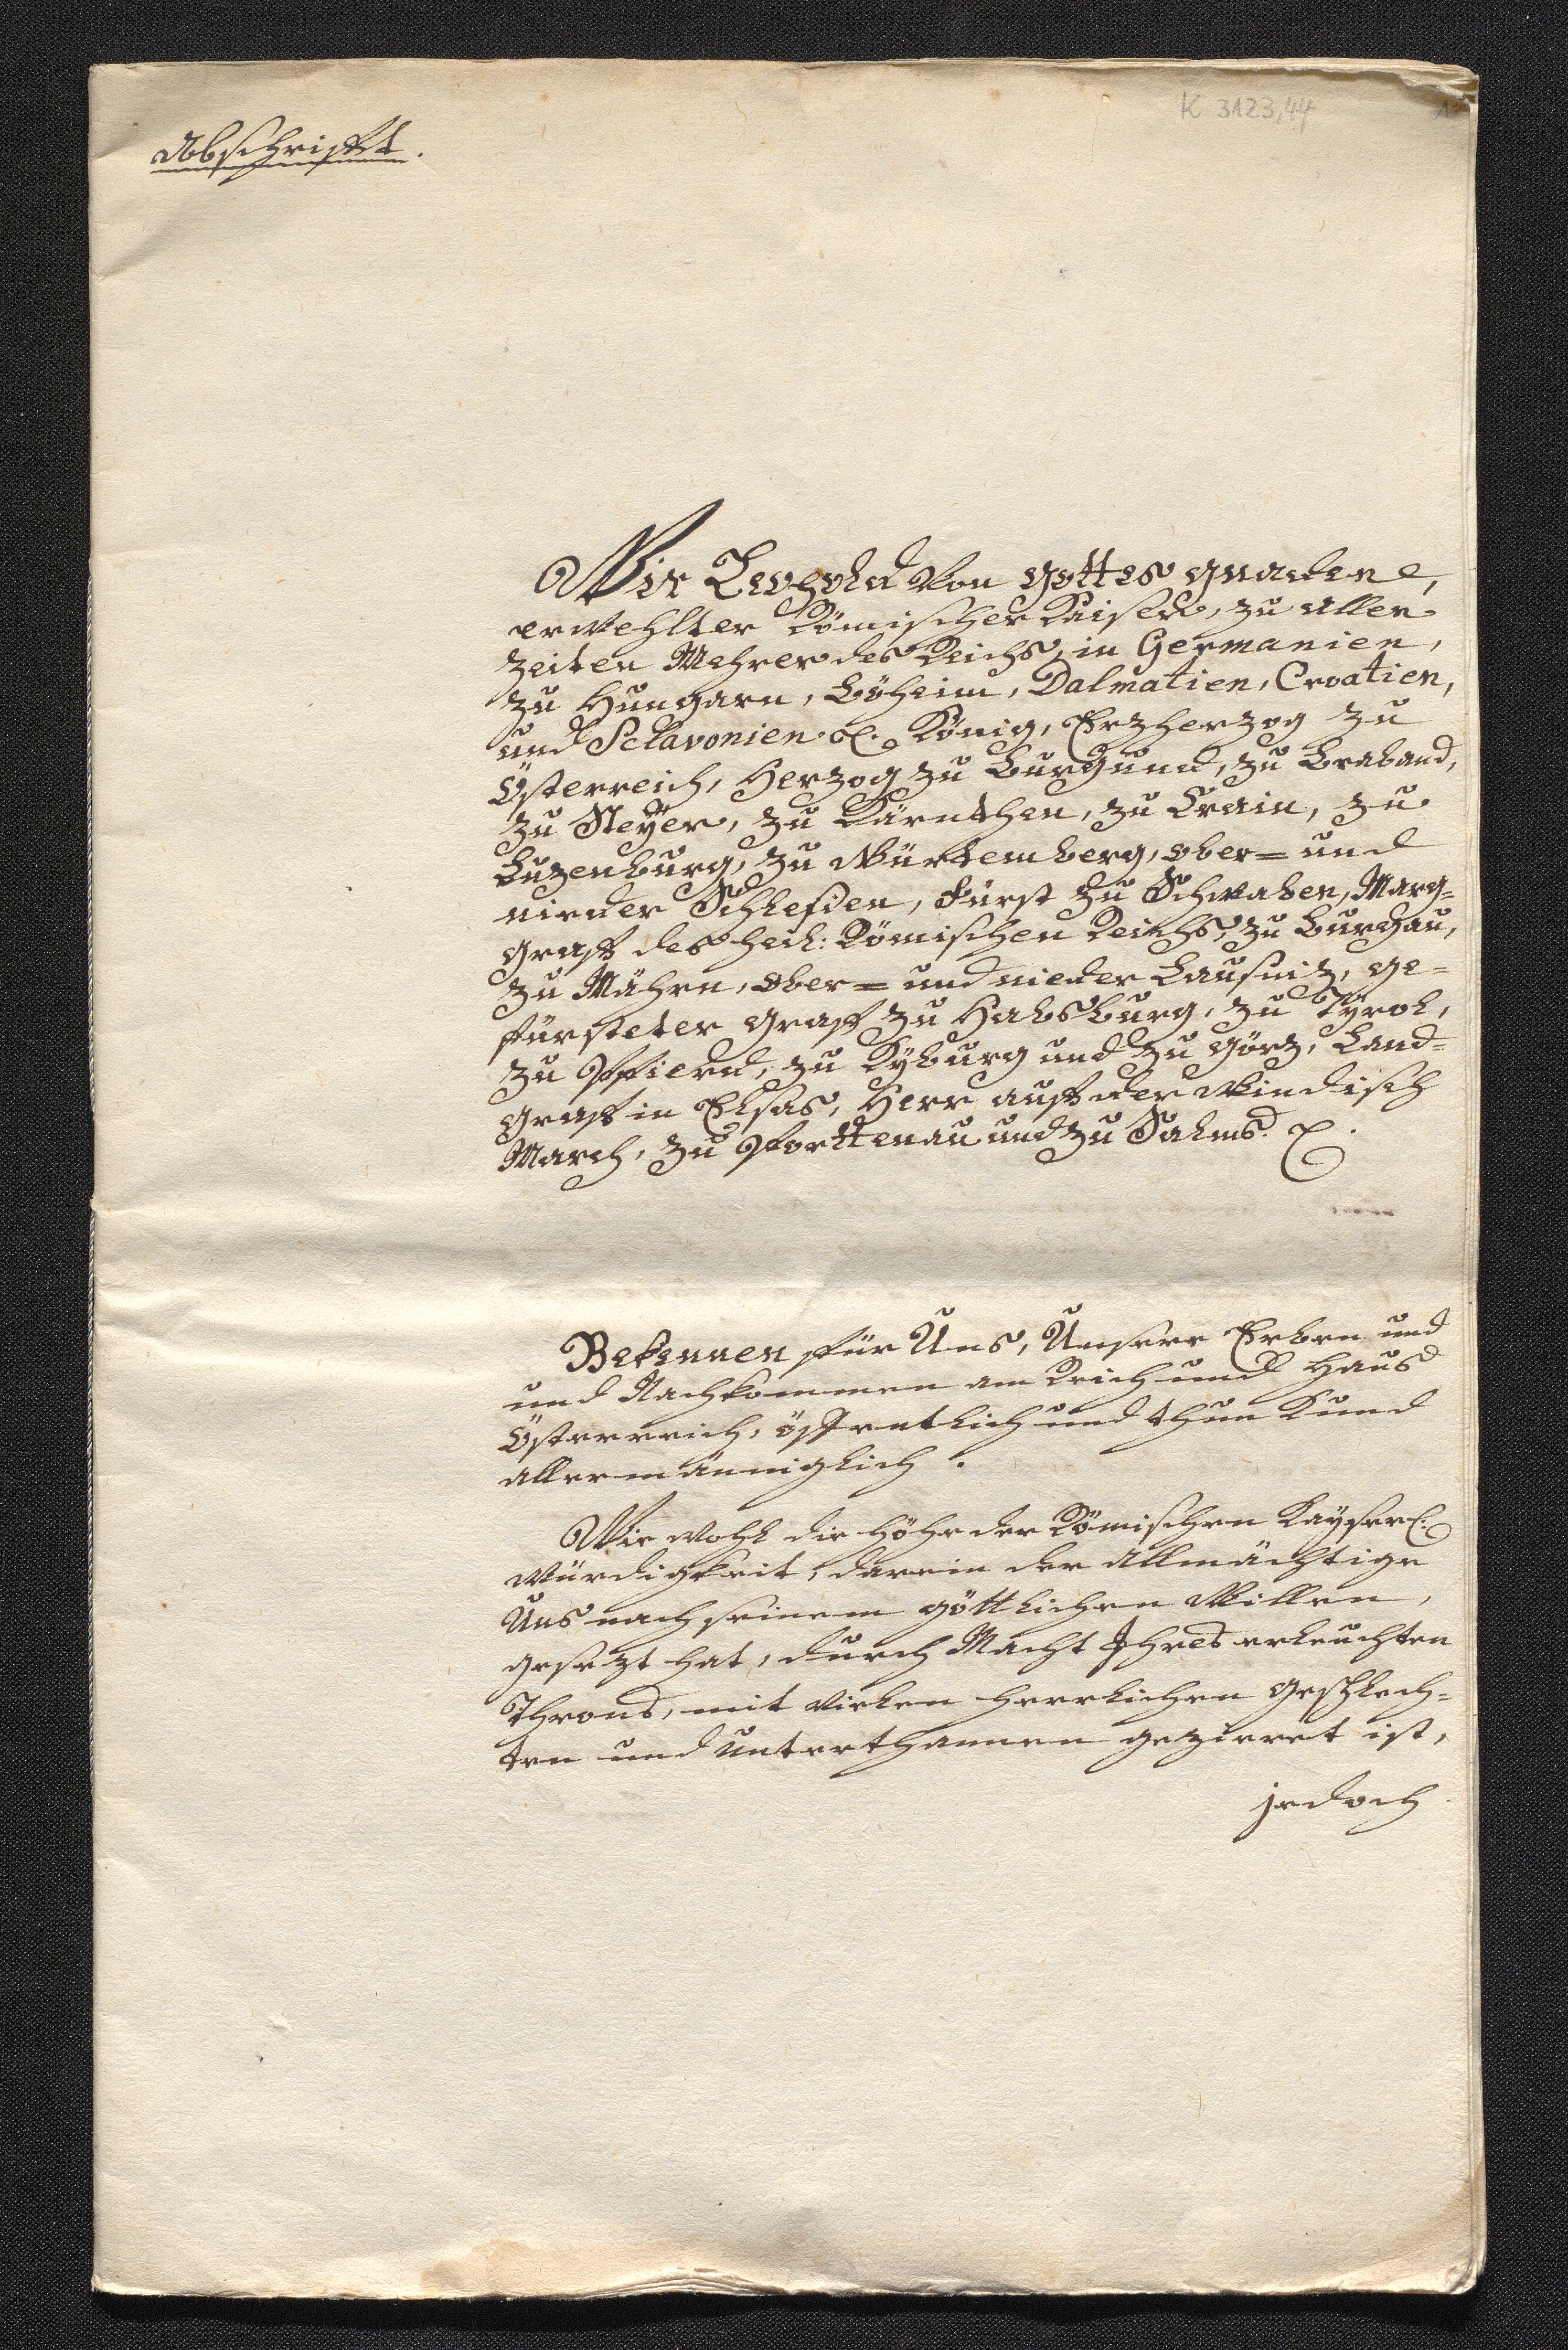 K 3123,44
1
Abschrifft.
Wir Leopold von gottes gnaden,
erwehlter Römischer Kaiser, zu allen
Zeiten Mehrer des Reichs, in Germanien,
zu Hungarn, Böheim, Dalmatien, Croatien,
und Sclavonien &c. König, Erzherzog zu
Österreich, Herzog zu Burgund, zu Braband,
zu Steÿer, zu Kärnthen, zu Crain, zu
Luzenburg, zu Würtemberg, ober= und
nieder Schlesien, Fürst zu Schwaben, Marg=
graff des heil: Römischen Reichs, zu Burgau,
zu Mähren, ober= und nieder Lausniz, ge=
fürsteter graff zu Habsburg, zu Tÿrol,
zu Pfierd, zu Kÿburg und zu görz, Land=
graff in Elsas, Herr auff der Windisch
March, zu Porttenau und zu Salms. &c.
Bekennen für Uns, Unsere Erben und
und Nachkommen am Reich und Haus
Österreich, öffentlich und thun Kund
allermänniglich.
Wie wohl die höhe der Römischen Kaÿserl.
würdigkeit, darein der allmächtige
Uns nach seinem göttlichen Willen,
gesezt hat, durch Macht Ihres erleuchten
Throns, mit vielen herrlichen geschlech=
ten und unterthannen gezieret ist,
jedoch